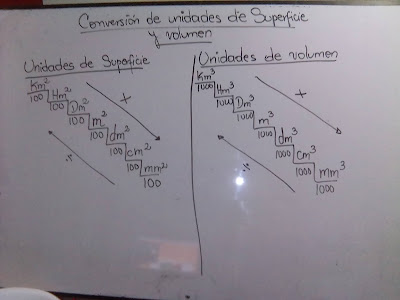 Conversión de unidades de Superficie
y volumen
Unidades de Superficie
Km²
100 Hm²
100 Dm²
100 m²
100 dm²
100 cm²
100 mm²
100
×
÷
Unidades de volumen
Km³
1000 Hm³
1000 Dm³
1000 m³
1000 dm³
1000 cm³
1000 mm³
1000
×
÷